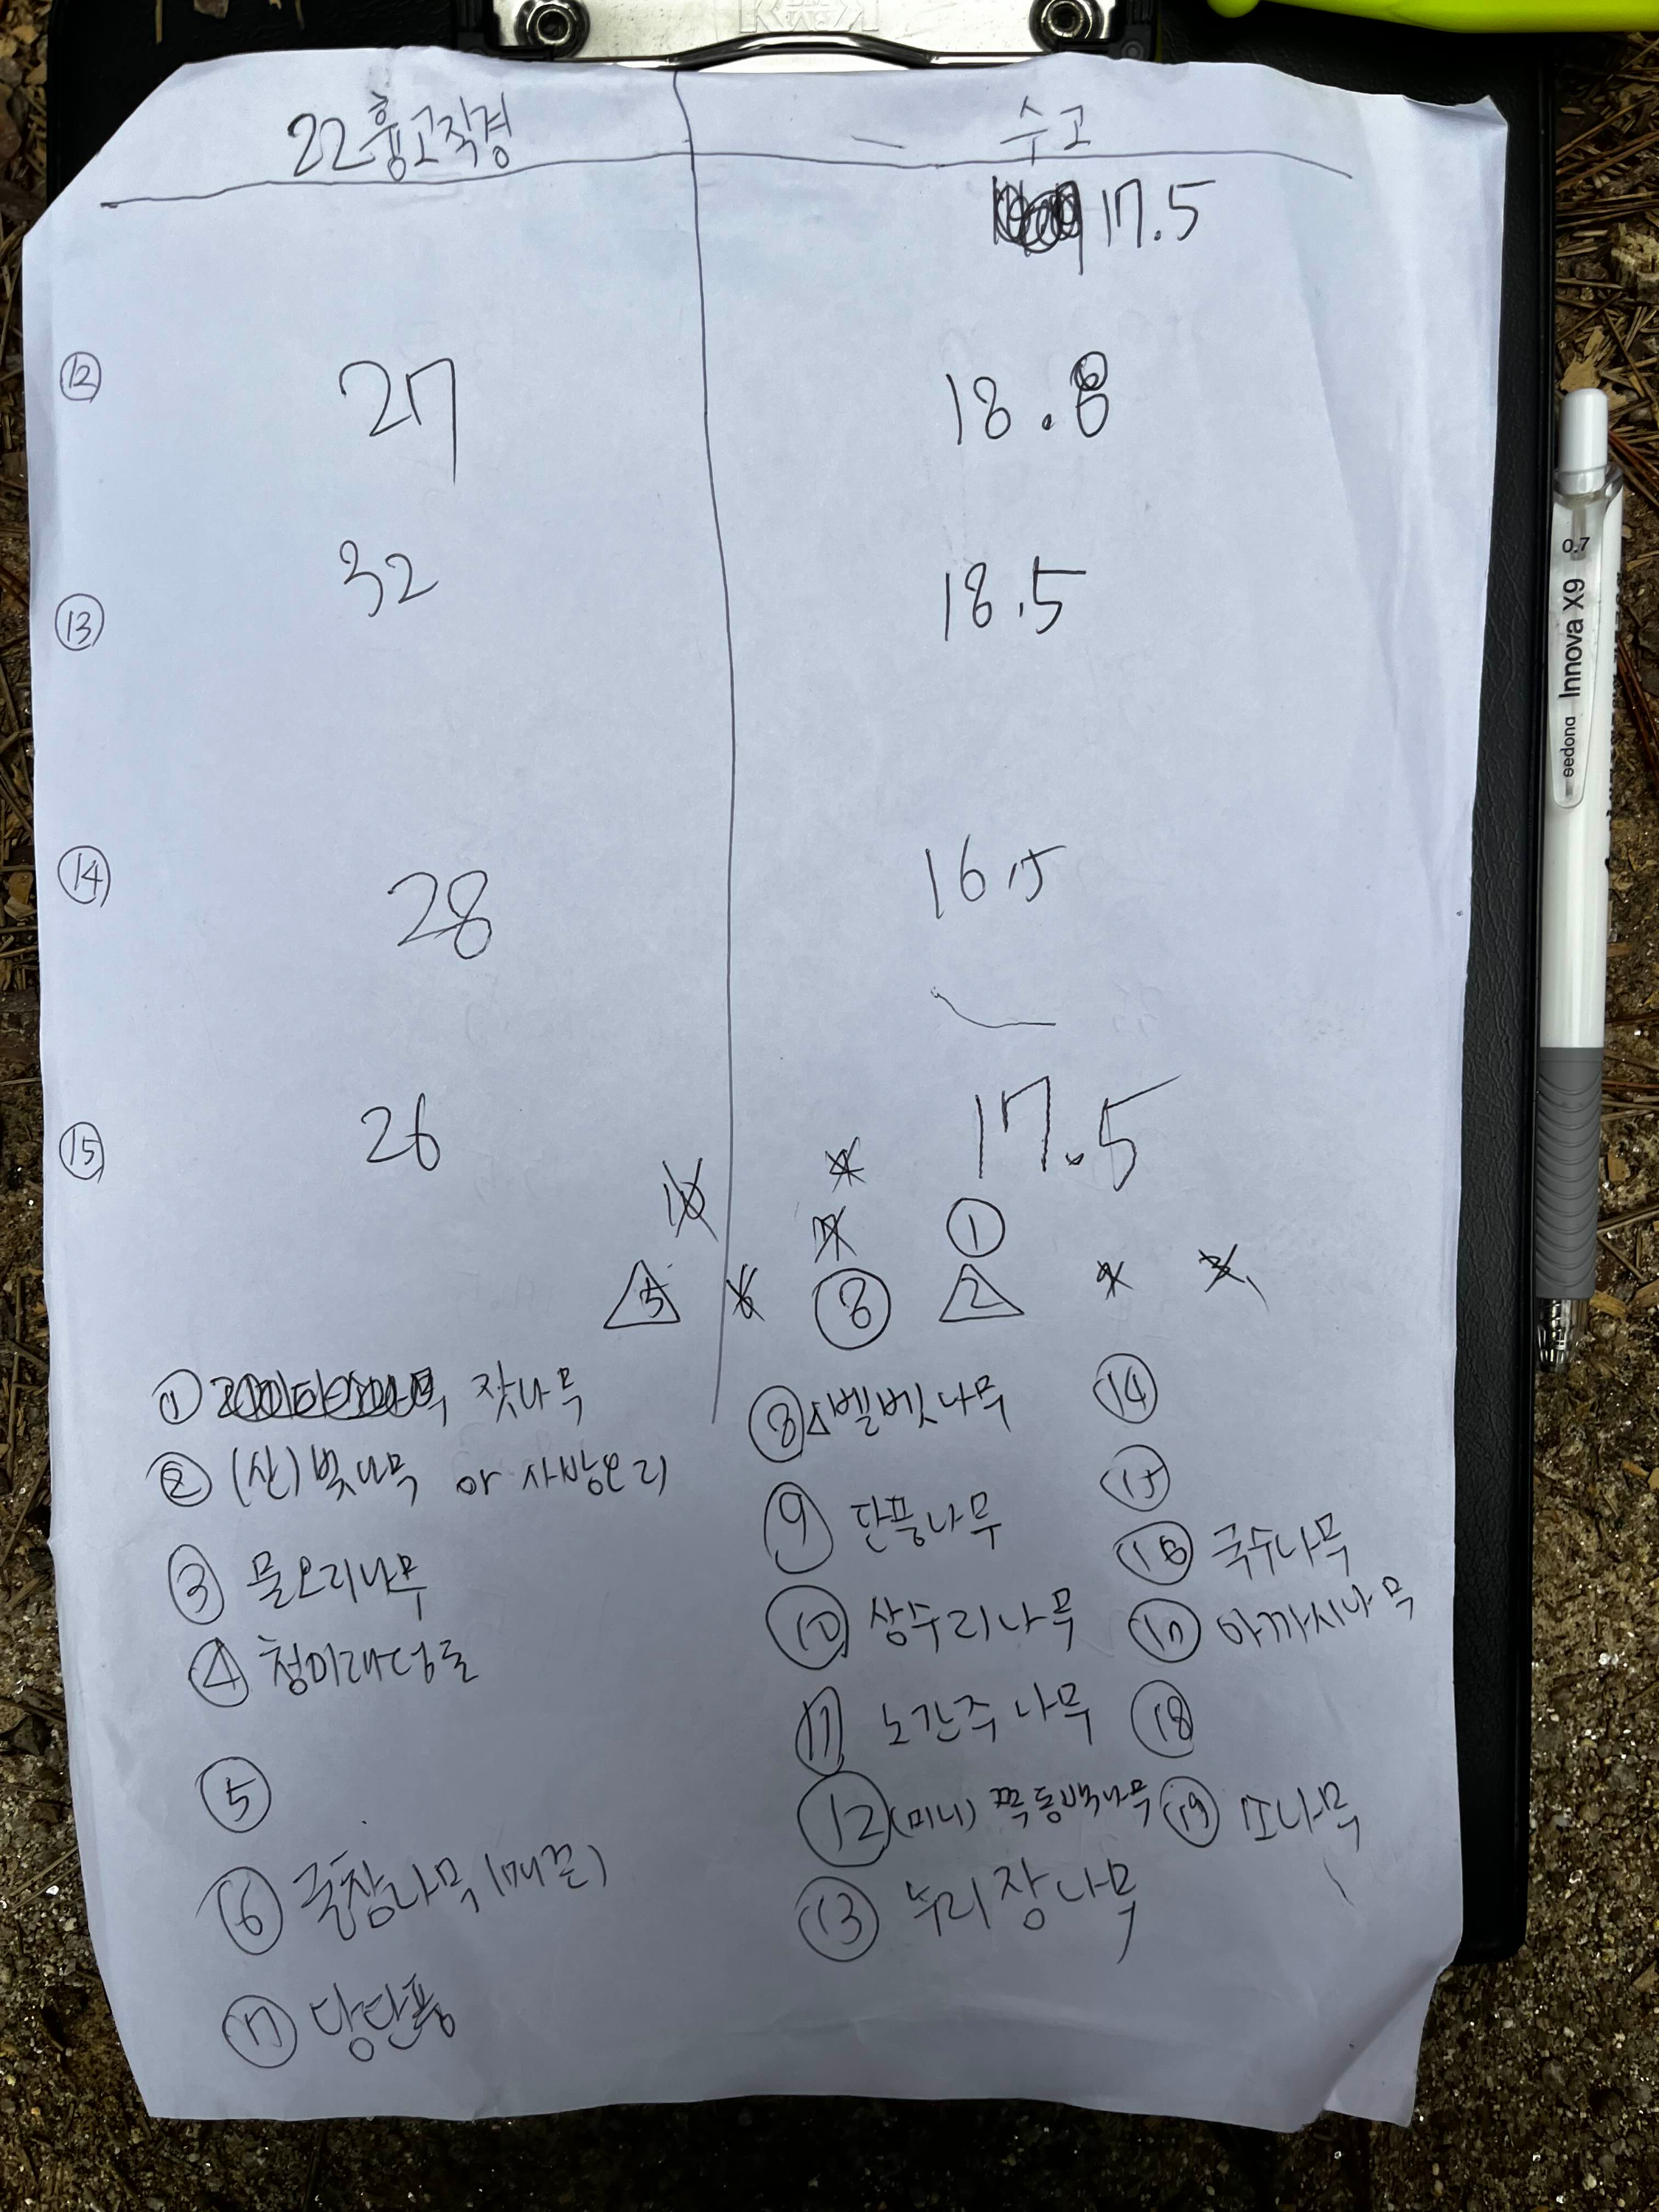 22 흉고직경 수고
17.5
⑫ 27 18.8
⑬ 32 18.5
⑭ 28 16.5
⑮ 26 17.5
10 4
7 ①
5 6 ⑧ 2 9 3
① 잣나무
② (산)벚나무 or 사방오리
③ 물오리나무
④ 청미래덩굴
⑤
⑥ 굴참나무(매끈)
⑦ 당단풍
⑧ 벨벳나무
⑨ 단풍나무
⑩ 상수리나무
⑪ 노간주나무
⑫ (미니) 쪽동백나무
⑬ 누리장나무
⑭
⑮
⑯ 국수나무
⑰ 아까시나무
⑱
⑲ 나무
0.7
eedong Innova X9